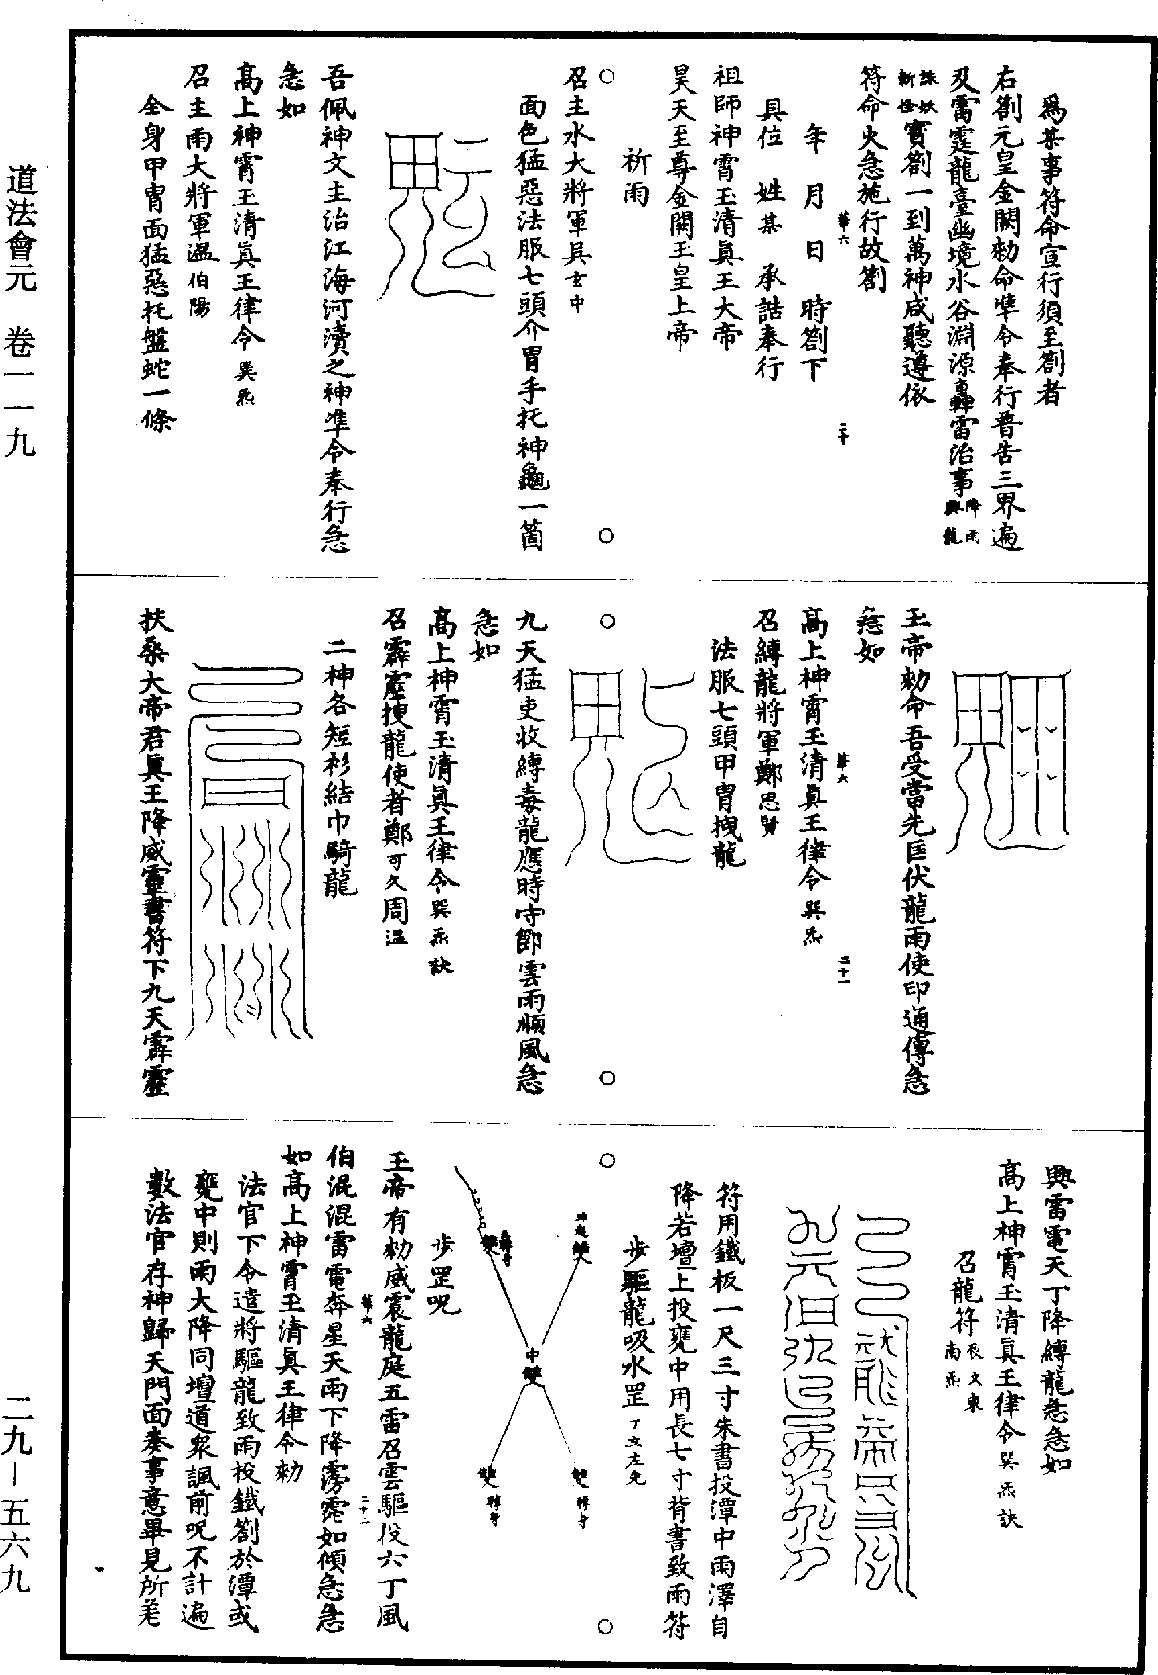 爲某事符命宣行須至劄者
右劄元皇金闕勑命準令奉行普告三界遍
及雷霆龍臺幽境水谷淵源轟雷治事降雨興龍
誅妖斬怪寶劄一到萬神咸聽遵依
符命火急施行故劄
年　月　日　時劄下
具位　姓某　承誥奉行
祖師神霄玉清眞王大帝
昊天至尊金闕玉皇上帝
祈雨
召主水大將軍吳玄中
面色猛惡法服七頭介胄手托神龜一箇
吾佩神文主治江海河瀆之神準令奉行急
急如
高上神霄玉清眞王律令巽炁
召主雨大將軍溫伯陽
全身甲胄面猛惡托盤蛇一條
玉帝勑命吾受當先匡伏龍雨使印通傳急
急如
高上神霄玉清眞王律令巽炁
召縛龍將軍鄭思賢
法服七頭甲胄拽龍
九天猛吏收縛毒龍應時守節雲雨順風急
急如
高上神霄玉清眞王律令巽炁訣
召霹靂㨔龍使者鄭可久周溫
二神各短衫結巾騎龍
扶桑大帝君眞王降威靈書符下九天霹靂
興雷電天丁降縛龍急急如
高上神霄玉清眞王律令巽炁訣
召龍符辰文東南炁
符用鐵板一尺三寸朱書投潭中雨澤自
降若壇上投甕中用長七寸背書致雨符
步驅龍吸水罡丁文左先
中雙
步罡呪
玉帝有勑威震龍庭五雷召雲驅役六丁風
伯混混雷電奔星天雨下降霶霈如傾急急
如高上神霄玉清眞王律令勑
法官下令遣將驅龍致雨投鐵劄於潭或
甕中則雨大降同壇道衆諷前呪不計遍
數法官存神歸天門面奏事意畢見所差
道法會元　卷一一九
二九－五六九